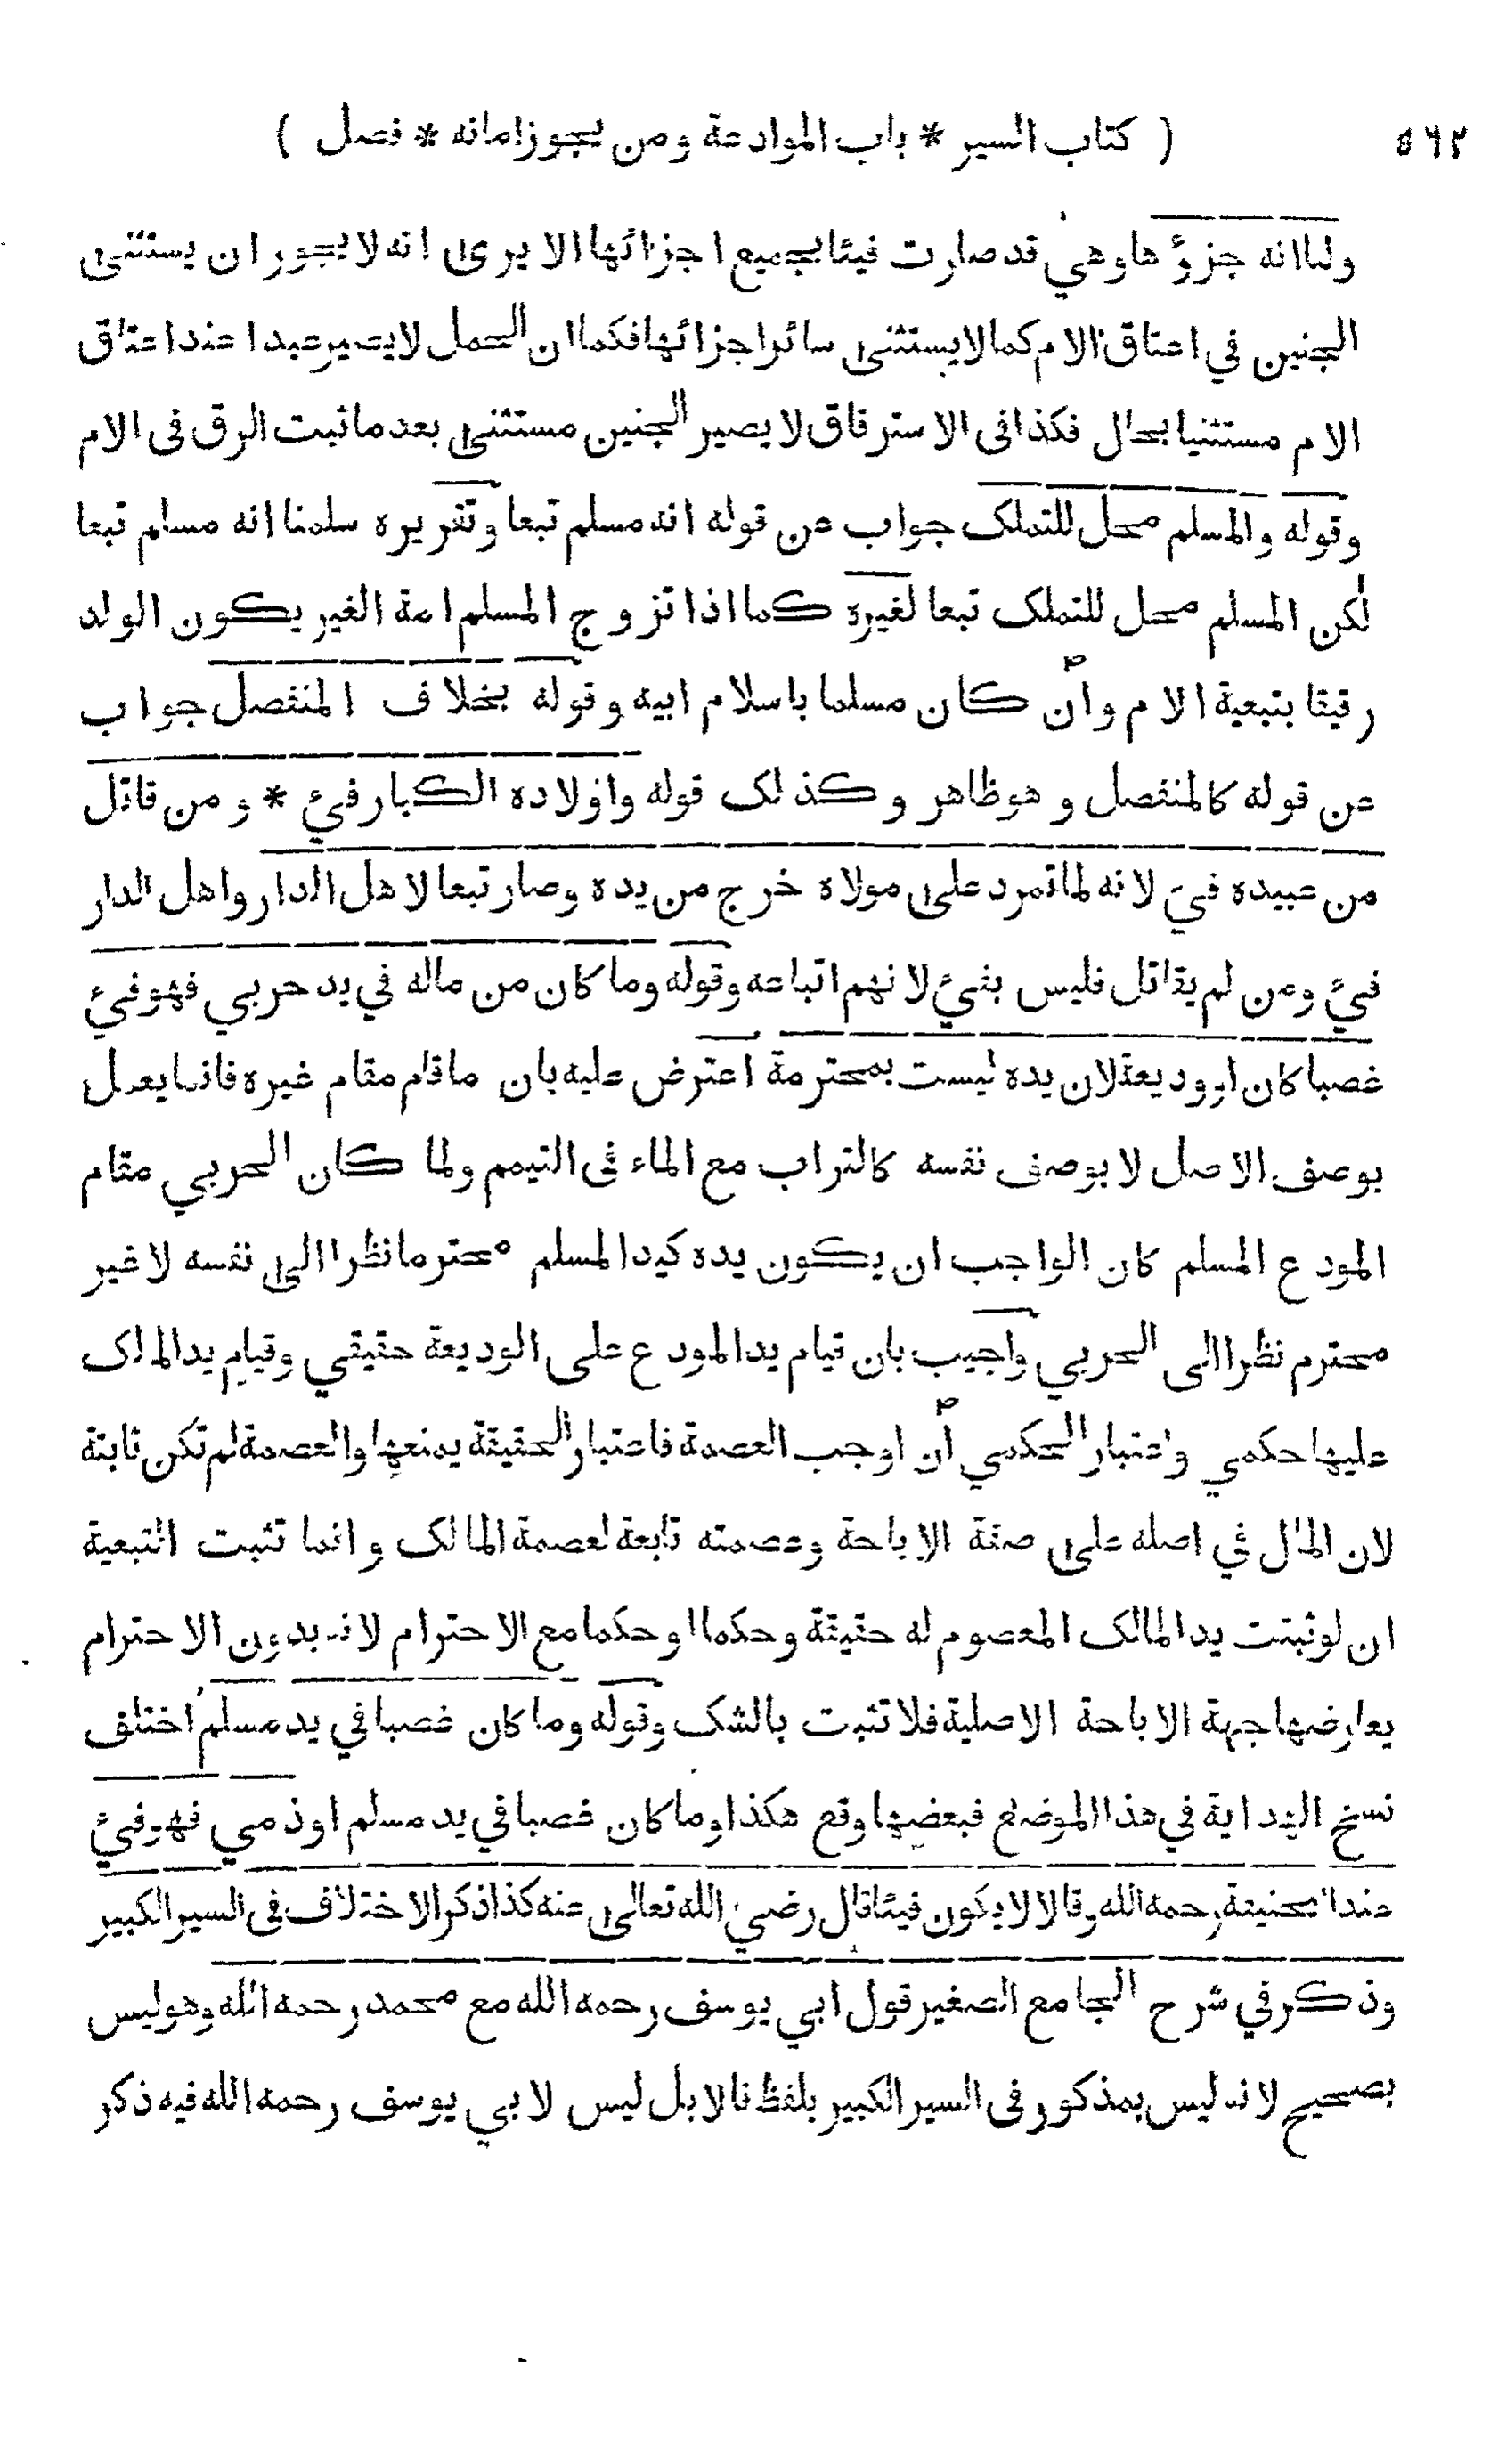 ( كتاب السير * باب الموادعة ومن يجوز امانه * فصل ) ٥٦٢
ولنا انه جزؤها وهي قد صارت فيئا بجميع اجزائها الا يرى انه لا يجوز ان يستثنى
الجنين في اعتاق الام كما لا يستثنى سائر اجزائها فكما ان الحمل لا يصير عبدا عند اعتاق
الام مستثنيا بحال فكذا في الاسترقاق لا يصير الجنين مستثنى بعد ما ثبت الرق في الام
وقوله والمسلم محل للتملك جواب عن قوله انه مسلم تبعا وتقريره سلمنا انه مسلم تبعا
لكن المسلم محل للتملك تبعا لغيره كما اذا تزوج المسلم امة الغير يكون الولد
رقيقا بتبعية الام وان كان مسلما باسلام ابيه وقوله بخلاف المنفصل جواب
عن قوله كالمنفصل وهو ظاهر وكذلك قوله واولاده الكبار فيئ * ومن قاتل
من عبيده فيئ لانه لما تمرد على مولاه خرج من يده وصار تبعا لاهل الدار واهل الدار
فيئ ومن لم يقاتل فليس بفيئ لانهم اتباعه وقوله وما كان من ماله في يد حربي فهو فيئ
غصبا كان او وديعة لان يده ليست بمحترمة اعترض عليه بان ما قام مقام غيره فانما يعمل
بوصف الاصل لا بوصف نفسه كالتراب مع الماء في التيمم ولما كان الحربي مقام
المودع المسلم كان الواجب ان يكون يده كيد المسلم محترما نظرا الى نفسه لا غير
محترم نظرا الى الحربي واجيب بان قيام يد المودع على الوديعة حقيقي وقيام يد المالك
عليها حكمي واعتبار الحكمي ان اوجب العصمة فاعتبار الحقيقة يمنعها والعصمة لم تكن ثابتة
لان المال في اصله على صفة الاباحة وعصمته تابعة لعصمة المالك وانما تثبت التبعية
ان لو ثبتت يد المالك المعصوم له حقيقة وحكما او حكما مع الاحترام لانه بدون الاحترام
يعارضها جهة الاباحة الاصلية فلا تثبت بالشك وقوله وما كان غصبا في يد مسلم اختلف
نسخ الهداية في هذا الموضع فبعضها وقع هكذا وما كان غصبا في يد مسلم او ذمي فهو فيئ
عند ابيحنيفة رحمه الله وقالا لا يكون فيئا قال رضي الله تعالى عنه كذا ذكر الاختلاف في السير الكبير
وذكر في شرح الجامع الصغير قول ابي يوسف رحمه الله مع محمد رحمه الله وهو ليس
بصحيح لانه ليس بمذكور في السير الكبير بلفظ قالا بل ليس لابي يوسف رحمه الله فيه ذكر